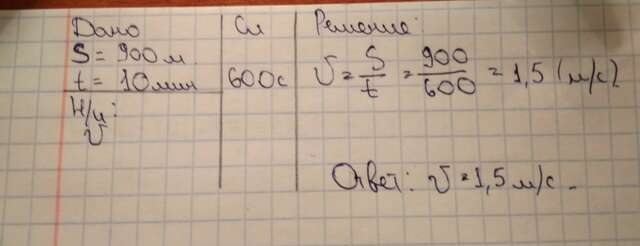 Дано
S = 900 м.
t = 10 мин
Н/и:
υ
Си
600 с
Решение:
υ = S/t = 900/600 = 1,5 (м/с)
Ответ: υ = 1,5 м/с.